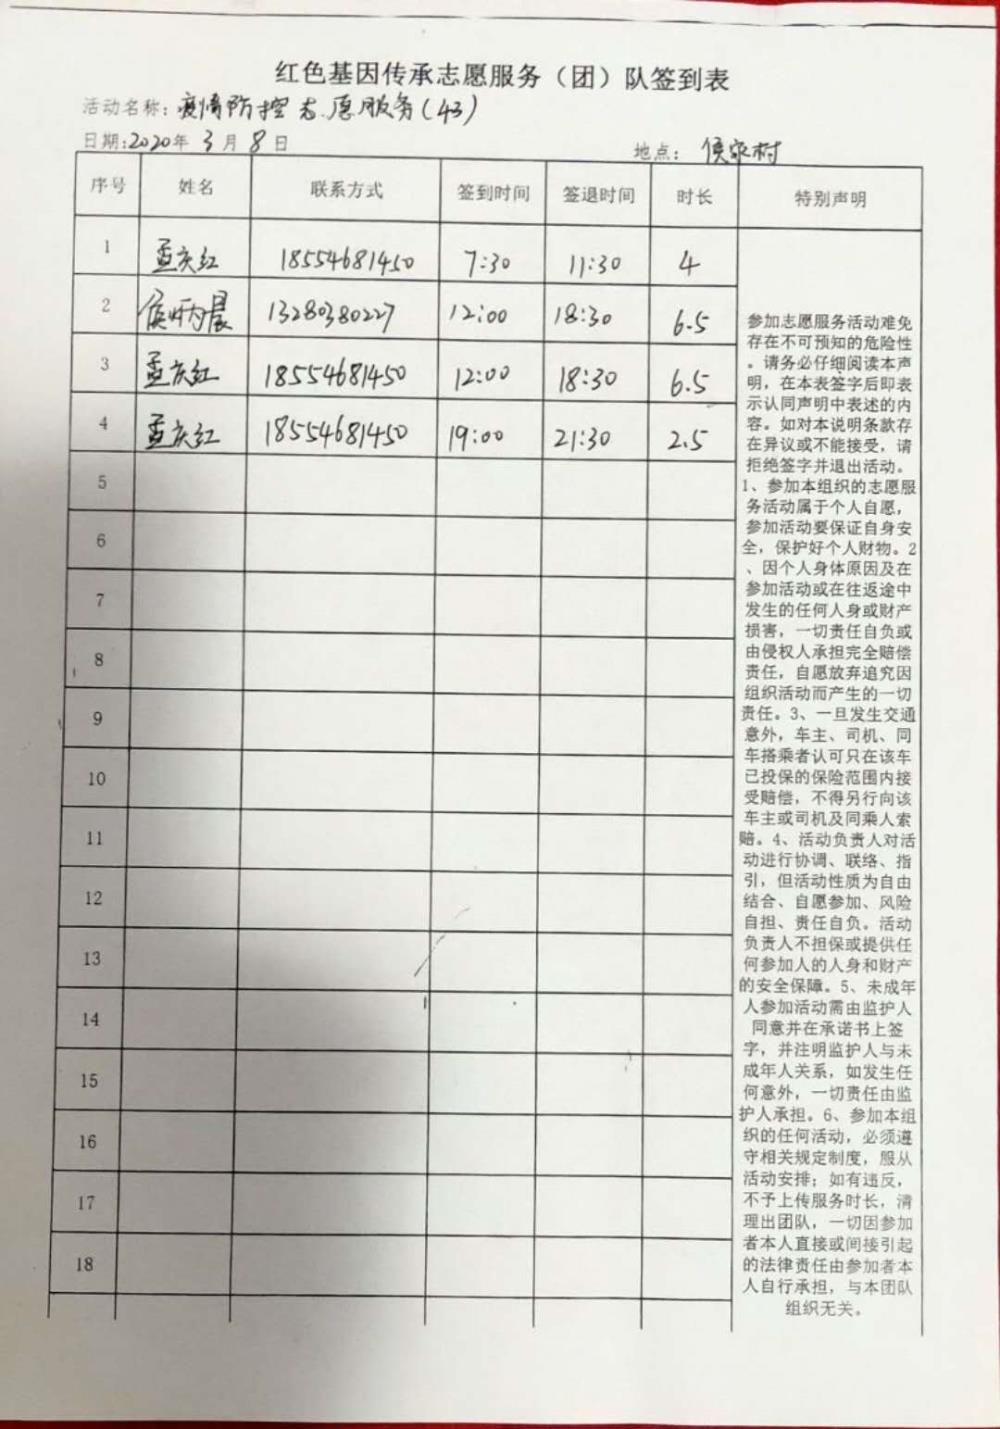 红色基因传承志愿服务（团）队签到表
活动名称：疫情防控志愿服务（43）
日期：2020年3月8日 地点：侯家村
序号 姓名 联系方式 签到时间 签退时间 时长 特别声明
1 孟庆红 18554681450 7:30 11:30 4
2 侯炳晨 13280380227 12:00 18:30 6.5
3 孟庆红 18554681450 12:00 18:30 6.5
4 孟庆红 18554681450 19:00 21:30 2.5
5
6
7
8
9
10
11
12
13
14
15
16
17
18
参加志愿服务活动难免
存在不可预知的危险性
。请务必仔细阅读本声
明，在本表签字后即表
示认同声明中表述的内
容。如对本说明条款存
在异议或不能接受，请
拒绝签字并退出活动。
1、参加本组织的志愿服
务活动属于个人自愿，
参加活动要保证自身安
全，保护好个人财物。2
、因个人身体原因及在
参加活动或在往返途中
发生的任何人身或财产
损害，一切责任自负或
由侵权人承担完全赔偿
责任，自愿放弃追究因
组织活动而产生的一切
责任。3、一旦发生交通
意外，车主、司机、同
车搭乘者认可只在该车
已投保的保险范围内接
受赔偿，不得另行向该
车主或司机及同乘人索
赔。4、活动负责人对活
动进行协调、联络、指
引，但活动性质为自由
结合、自愿参加、风险
自担、责任自负。活动
负责人不担保或提供任
何参加人的人身和财产
的安全保障。5、未成年
人参加活动需由监护人
同意并在承诺书上签
字，并注明监护人与未
成年人关系，如发生任
何意外，一切责任由监
护人承担。6、参加本组
织的任何活动，必须遵
守相关规定制度，服从
活动安排；如有违反，
不予上传服务时长，清
理出团队，一切因参加
者本人直接或间接引起
的法律责任由参加者本
人自行承担，与本团队
组织无关。